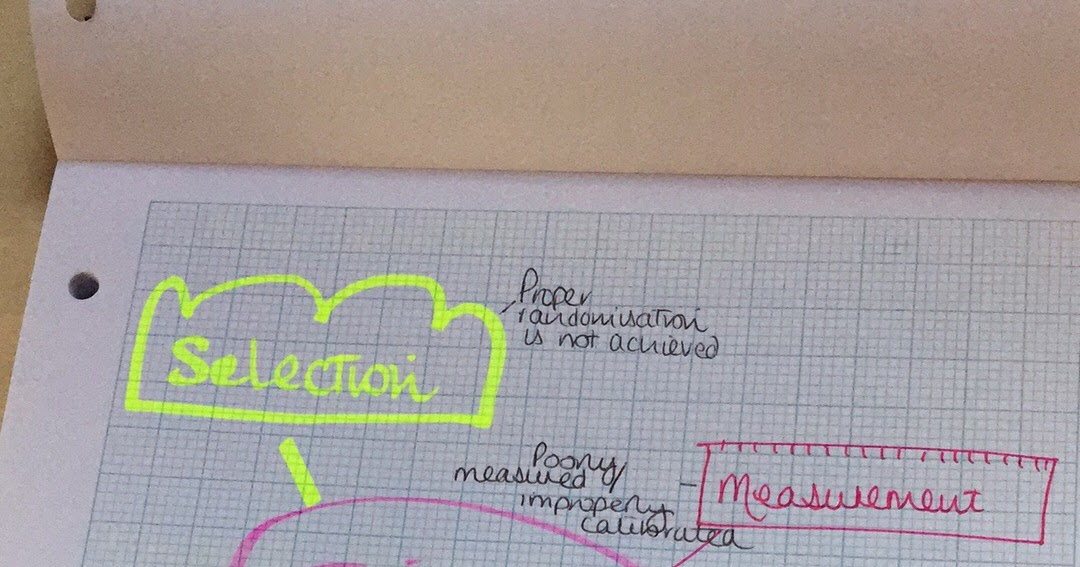 Proper
randomisation
is not achieved
Selection
Poorly
measured /
improperly
calibrated
Measurement